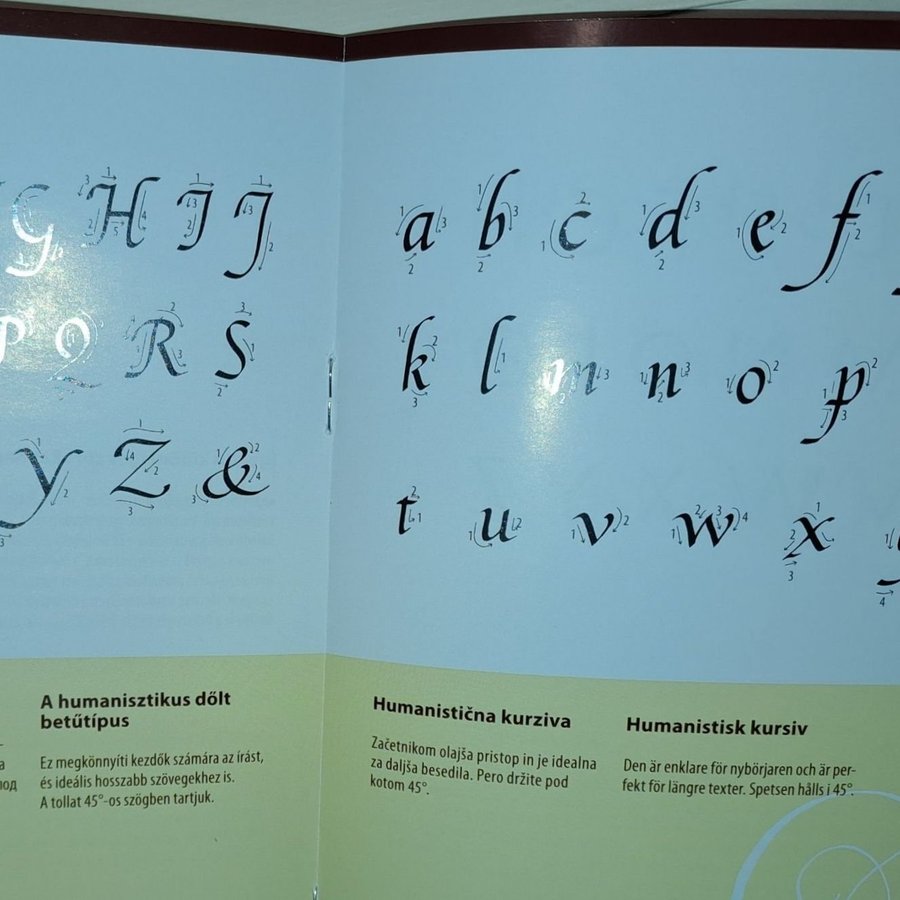 G H I J
P Q R S
Y Z &
a b c d e f
k l m n o p
t u v w x
A humanisztikus dőlt
betűtípus
Ez megkönnyíti kezdők számára az írást,
és ideális hosszabb szövegekhez is.
A tollat 45°-os szögben tartjuk.
Humanistična kurziva
Začetnikom olajša pristop in je idealna
za daljša besedila. Pero držite pod
kotom 45°.
Humanistisk kursiv
Den är enklare för nybörjaren och är per-
fekt för längre texter. Spetsen hålls i 45°.